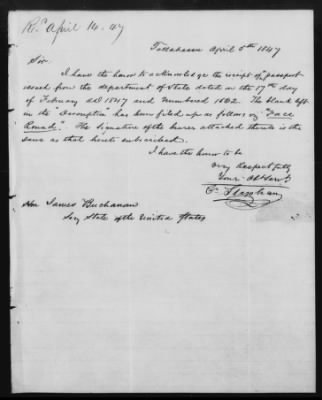 Rd April 14. 47
Tallahassee April 5th 1847
Sir.
I have the honor to acknowledge the receipt of passport
issued from the department of State dated on the 17th day
of February AD 1847 and numbered 1682. The blank left
in the Description has been filed up as follows viz "Face
Round". The signature of the bearer attached thereto is the
same as that hereto subscribed.
I have the honor to be
very respectfully
Your Obt Servt
Hon James Buchanan
Secy State of the United States